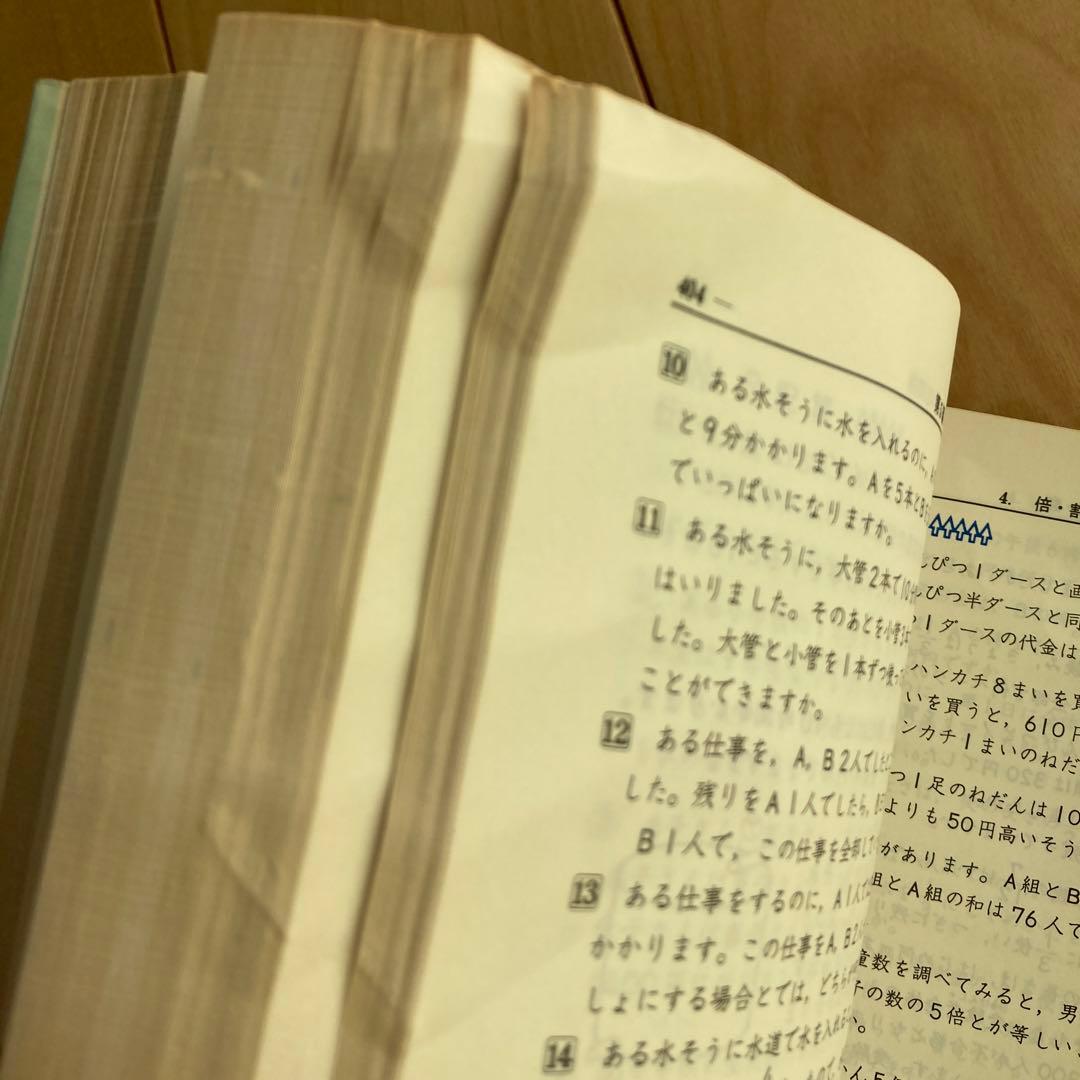 404 —
10 ある水そうに水を入れるのに,
と9分かかります。Aを5本とB
ていっぱいになりますか。
11 ある水そうに,大管2本で10
はいりました。そのあとを小管3
した。大管と小管を1本ずつ使っ
ことができますか。
12 ある仕事を,A,B2人でした
した。残りをA1人でしたら,
B1人で,この仕事を全部し
13 ある仕事をするのに,A1人で
かかります。この仕事をA,B2
しょにする場合とでは,どちら
14 ある水そうに水道で水を入れる
4. 倍・割
ぴつ1ダースと画
ぴつ半ダースと同
1ダースの代金は
ハンカチ8まいを買
いを買うと,610円
ンカチ1まいのねだ
つ1足のねだんは10
よりも50円高いそう
があります。A組とB
組とA組の和は76人で
童数を調べてみると,男
子の数の5倍とが等しい